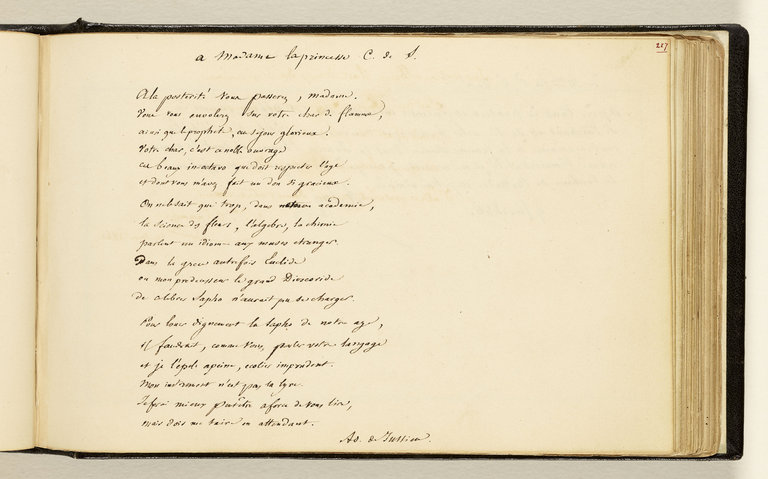 227
a Madame la princesse C. de S.
A la posterité vous passerez, madame.
Vous vous envolerez sur votre char de flamme,
ainsi que le prophete, au sejour glorieux.
Votre char, c'est ce noble ouvrage
ce beau in-octavo que doit respecter l'age
et dont vous m'avez fait un don si gracieux.
On ne le sait que trop, dans academie,
la science des fleurs, l'algebre, la chimie
parlent un idiome aux muses etranger.
Dans la grece autrefois Euclide
ou mon predecesseur le grand Dioscoride
de celebrer Sapho n'aurait pu se charger.
Pour louer dignement la sapho de notre age,
il faudrait, comme vous, parler votre langage
et je l'épele apeine, ecolier imprudent.
Mon instrument n'est pas la lyre.
Je ferai mieux peutêtre a force de vous lire,
mais dois me taire en attendant.
Ad. de Jussieu.